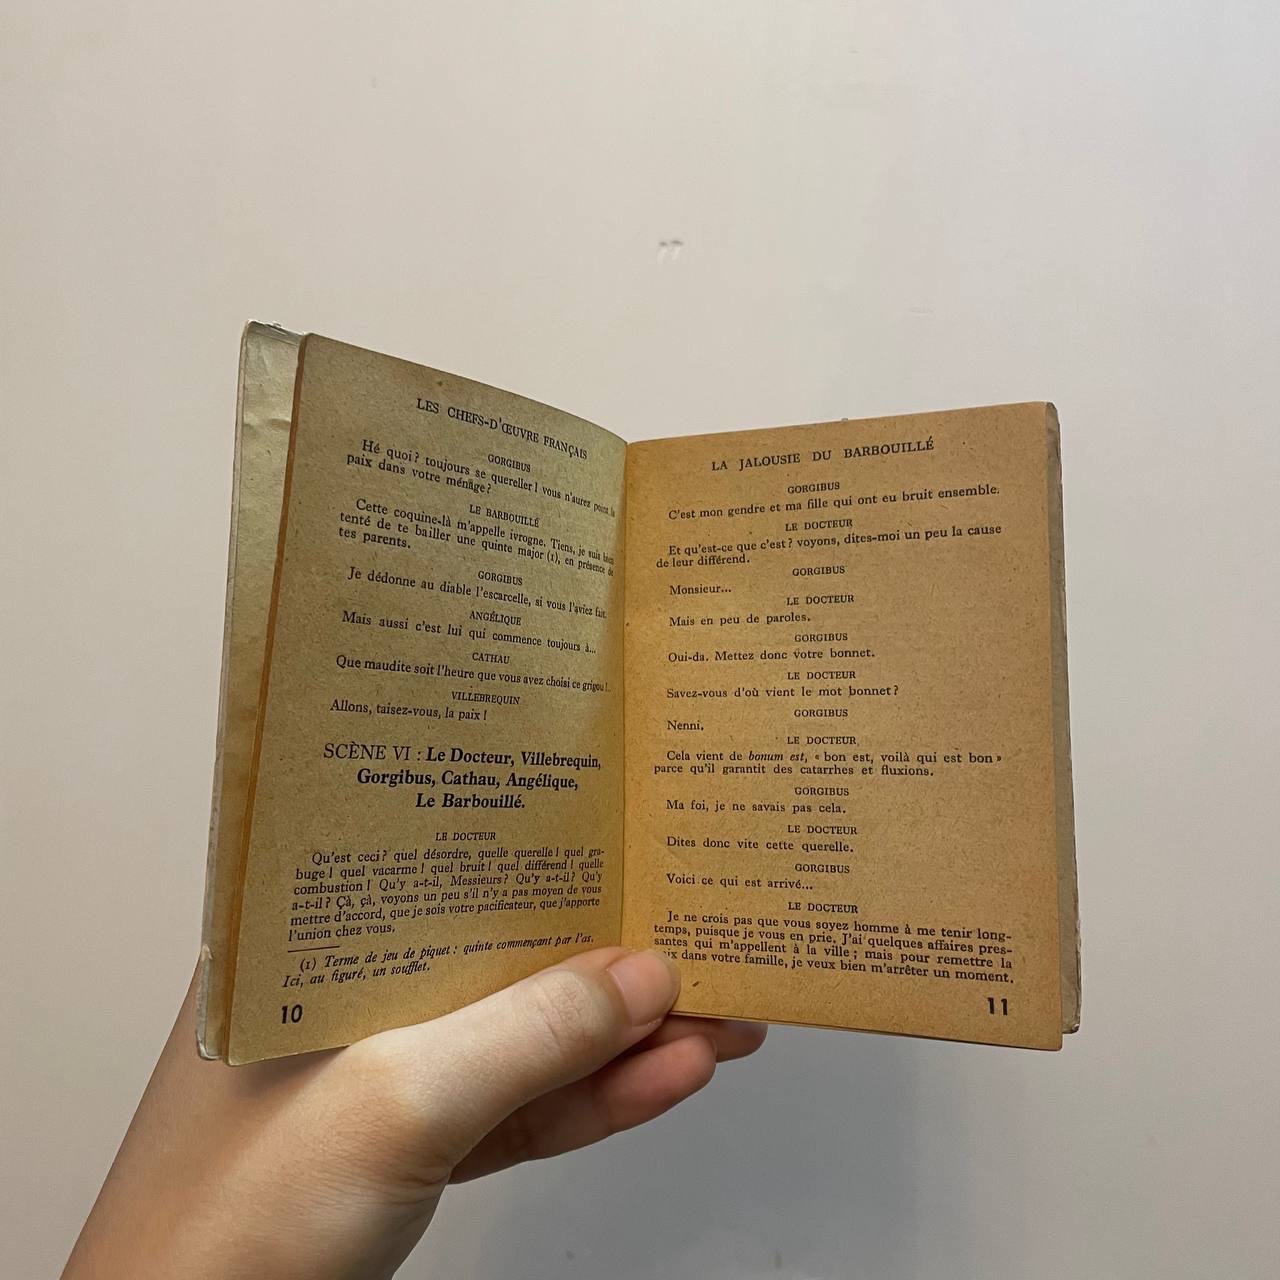 LES CHEFS-D'ŒUVRE FRANÇAIS
GORGIBUS
Hé quoi? toujours se quereller! vous n'aurez point la
paix dans votre ménage?
LE BARBOUILLÉ
Cette coquine-là m'appelle ivrogne. Tiens, je suis bien
tenté de te bailler une quinte major (1), en présence de
tes parents.
GORGIBUS
Je dédonne au diable l'escarcelle, si vous l'aviez fait.
ANGÉLIQUE
Mais aussi c'est lui qui commence toujours à...
CATHAU
Que maudite soit l'heure que vous avez choisi ce grigou!..
VILLEBREQUIN
Allons, taisez-vous, la paix!
SCÈNE VI : Le Docteur, Villebrequin,
Gorgibus, Cathau, Angélique,
Le Barbouillé.
LE DOCTEUR
Qu'est ceci? quel désordre, quelle querelle! quel gra-
buge! quel vacarme! quel bruit! quel différend! quelle
combustion! Qu'y a-t-il, Messieurs? Qu'y a-t-il? Qu'y
a-t-il? Çà, çà, voyons un peu s'il n'y a pas moyen de vous
mettre d'accord, que je sois votre pacificateur, que j'apporte
l'union chez vous.
(1) Terme de jeu de piquet : quinte commençant par l'as.
Ici, au figuré, un soufflet.
10
LA JALOUSIE DU BARBOUILLÉ
GORGIBUS
C'est mon gendre et ma fille qui ont eu bruit ensemble.
LE DOCTEUR
Et qu'est-ce que c'est? voyons, dites-moi un peu la cause
de leur différend.
GORGIBUS
Monsieur...
LE DOCTEUR
Mais en peu de paroles.
GORGIBUS
Oui-da. Mettez donc votre bonnet.
LE DOCTEUR
Savez-vous d'où vient le mot bonnet?
GORGIBUS
Nenni.
LE DOCTEUR
Cela vient de bonum est, « bon est, voilà qui est bon »
parce qu'il garantit des catarrhes et fluxions.
GORGIBUS
Ma foi, je ne savais pas cela.
LE DOCTEUR
Dites donc vite cette querelle.
GORGIBUS
Voici ce qui est arrivé...
LE DOCTEUR
Je ne crois pas que vous soyez homme à me tenir long-
temps, puisque je vous en prie. J'ai quelques affaires pres-
santes qui m'appellent à la ville; mais pour remettre la
paix dans votre famille, je veux bien m'arrêter un moment.
11